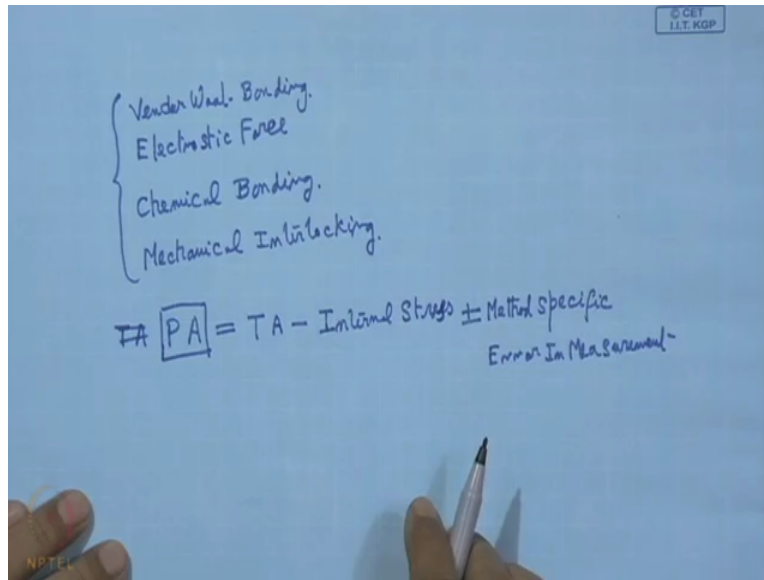 © CET
I.I.T. KGP
Vender Waal. Bonding.
Electrostic Force
Chemical Bonding.
Mechanical Interlocking.
TA PA = TA - Internal Stress ± Method Specific
Error In Measurement
NPTEL